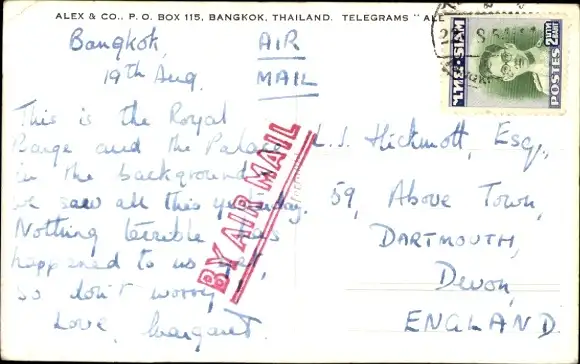 ALEX & CO., P. O. BOX 115, BANGKOK, THAILAND. TELEGRAMS " ALE
Bangkok,
19th Aug.
AIR
MAIL
This is the Royal
Barge and the Palace
in the background,
we saw all this yesterday.
Nothing terrible has
happened to us yet,
so don't worry,
Love, Margaret.
BY AIR MAIL
L.J. Hickmott, Esq.,
59, Above Town,
DARTMOUTH,
Devon,
ENGLAND
ไทย-SIAM
POSTES